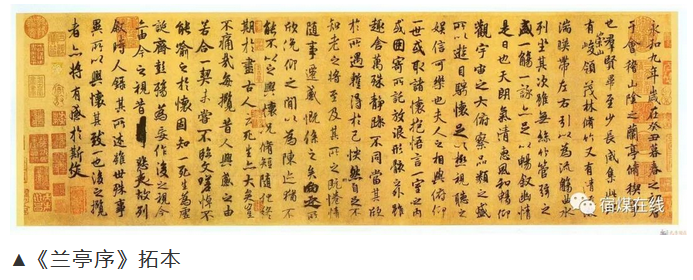 永和九年歲在癸丑暮春之初會
于會稽山陰之蘭亭脩稧事
也群賢畢至少長咸集此地
有崇山峻領茂林脩竹又有清流激
湍暎帶左右引以為流觴曲水
列坐其次雖無絲竹管弦之
盛一觴一詠亦足以暢敘幽情
是日也天朗氣清惠風和暢仰
觀宇宙之大俯察品類之盛
所以遊目騁懷足以極視聽之
娛信可樂也夫人之相與俯仰
一世或取諸懷抱悟言一室之內
或因寄所託放浪形骸之外雖
趣舍萬殊靜躁不同當其欣
於所遇暫得於己快然自足不
知老之將至及其所之既惓情
隨事遷感慨係之矣向之所
欣俛仰之閒以為陳迹猶不
能不以之興懷況脩短隨化終
期於盡古人云死生亦大矣豈
不痛哉每攬昔人興感之由
若合一契未嘗不臨文嗟悼不
能喻之於懷固知一死生為虛
誕齊彭殤為妄作後之視今
亦由今之視昔悲夫故列
敘時人錄其所述雖世殊事
異所以興懷其致一也後之攬
者亦將有感於斯文
宿煤在线
▲《兰亭序》拓本